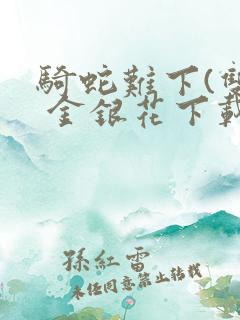 騎蛇難下(
金銀花下載
孫紅雷
未經同意禁止轉載